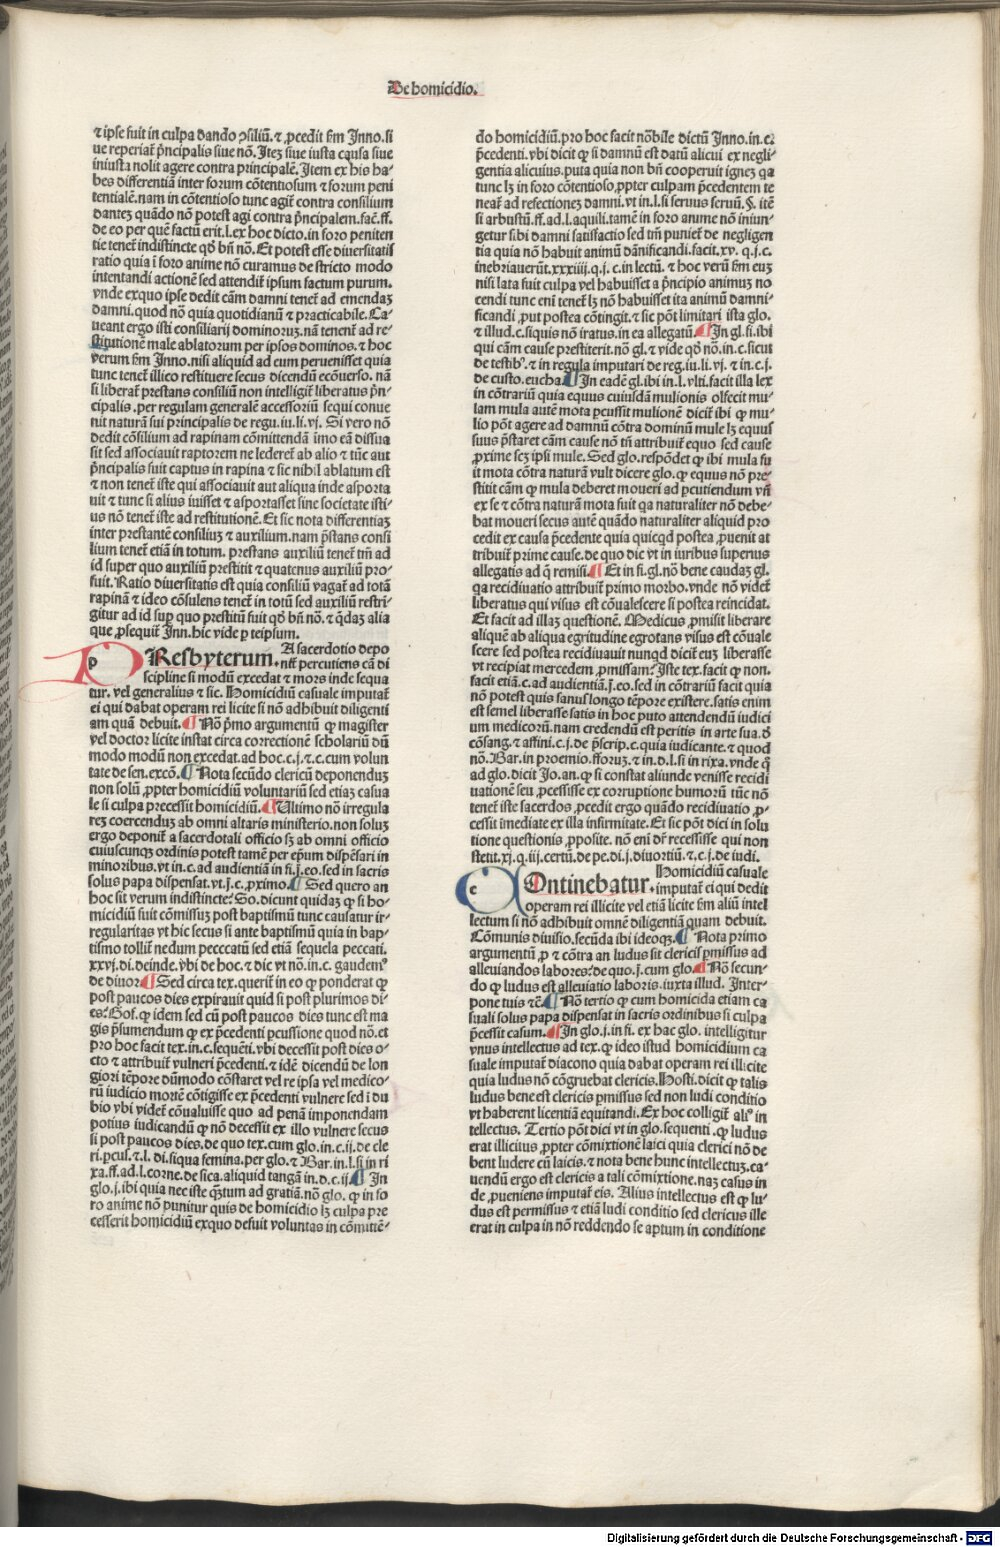 De homicidio.
⁊ ipse fuit in culpa dando ꝯsiliū. ⁊ ꝓcedit ẜm Inno. si
ue reperiat᷑ p̄ncipalis siue nō. Iteꝫ siue iusta causa siue
iniusta nolit agere contra principalē. Item ex his ha⸗
bes differentiā inter forum cōtentiosum ⁊ forum peni
tentiale. nam in cōtentioso tunc agit᷑ contra consilium
danteꝫ quādo nō potest agi contra p̄ncipalem. fac̄. ff.
de eo per quē factū erit. l. ex hoc dicto. in foro peniten
tie tenet᷑ indistincte qđ bn̄ nō. Et potest esse diuersitatis
ratio quia ī foro anime nō curamus de stricto modo
intentandi actionē sed attendit᷑ ipsum factum purum.
vnde exquo ipse dedit cām damni tenet᷑ ad emendaꝫ
damni. quod nō quia quotidianū ⁊ practicabile. Ca⸗
ueant ergo isti consiliarij dominoruꝫ. nā tenent᷑ ad re⸗
stitutionē male ablatorum per ipsos dominos. ⁊ hoc
verum ẜm Inno. nisi aliquid ad eum peruenisset quia
tunc tenet᷑ illico restituere secus dicendū ecōuerso. nā
si liberat᷑ prestans consiliū non intelligit᷑ liberatus p̄n⸗
cipalis. per regulam generalē accessoriū sequi conue
nit naturā sui principalis de regu. iu. li. vj. Si vero nō
dedit cōsilium ad rapinam cōmittendā imo eā dissua
sit sed associauit raptorem ne lederet᷑ ab alio ⁊ tūc aut
p̄ncipalis fuit captus in rapina ⁊ sic nihil ablatum est
⁊ non tenet᷑ iste qui associauit aut aliqua inde asporta
uit ⁊ tunc si alius iuisset ⁊ asportasset sine societate isti⸗
us nō tenet᷑ iste ad restitutionē. Et sic nota differentiaꝫ
inter prestantē consiliuꝫ ⁊ auxilium. nam p̄stans consi
lium tenet᷑ etiā in totum. prestans auxiliū tenet᷑ tm̄ ad
id super quo auxiliū prestitit ⁊ quatenus auxiliū pro⸗
fuit. Ratio diuersitatis est quia consiliū vagat᷑ ad totā
rapinā ⁊ ideo cōsulens tenet᷑ in totū sed auxiliū restri⸗
gitur ad id suꝑ quo prestitū fuit qđ bn̄ nō. ⁊ q̄daꝫ alia
que ꝓsequit᷑ Inn. hic vide ꝑ teipsum.
PResbyterum. A sacerdotio depo
nit᷑ percutiens cā di
scipline si modū excedat ⁊ mors inde sequa
tur. vel generalius ⁊ sic. Homicidiū casuale imputat᷑
ei qui dabat operam rei licite si nō adhibuit diligenti
am quā debuit. ¶ Nō p̄mo argumentū ꝙ magister
vel doctor licite instat circa correctionē scholariū dū
modo modū non excedat. ad hoc. c. j. ⁊. c. cum volun
tate de sen. excō. ¶ Nota secūdo clericū deponenduꝫ
non solū ꝓpter homicidiū voluntariū sed etiaꝫ casua
le si culpa precessit homicidiū. ¶ Ultimo nō irregula
reꝫ coercenduꝫ ab omni altaris ministerio. non soluꝫ
ergo deponit᷑ a sacerdotali officio sꝫ ab omni officio
cuiuscunqꝫ ordinis potest tamē per ep̄um dispēsari in
minoribus. vt in. c. ad audientiā in fi. j. eo. sed in sacris
solus papa dispensat. vt. j. c. ꝓximo. ¶ Sed quero an
hoc sit verum indistincte? So. dicunt quidaꝫ ꝙ si ho⸗
micidiū fuit cōmissuꝫ post baptismū tunc causatur ir⸗
regularitas vt hic secus si ante baptismū quia in bap⸗
tismo tollit᷑ nedum pecccatū sed etiā sequela peccati.
xxvj. di. deinde. vbi de hoc. ⁊ dic vt nō. in. c. gaudemꝰ
de diuor. ¶ Sed circa tex. querit᷑ in eo ꝙ ponderat ꝙ
post paucos dies expirauit quid si post plurimos di⸗
es? Gof. ꝙ idem sed cū post paucos dies tunc est ma
gis p̄sumendum ꝙ ex p̄cedenti ꝑcussione quod nō. et
pro hoc facit tex. in. c. sequēti. vbi decessit post dies o⸗
cto ⁊ attribuit᷑ vulneri p̄cedenti. ⁊ idē dicendū de lon
giori tēpore dūmodo cōstaret vel re ipsa vel medico⸗
rū iudicio mortē cōtigisse ex p̄cedenti vulnere sed ī du
bio vbi videt᷑ cōualuisse quo ad penā imponendam
potius iudicandū ꝙ nō decessit ex illo vulnere secus
si post paucos dies. de quo tex. cum glo. in. c. ij. de cle
ri. ꝑcus. ⁊. l. di. siqua femina. per glo. ⁊ Bar. in. l. si in ri
xa. ff. ad. l. corne. de sica. aliquid tangā in. d. c. ij. ¶ In
glo. j. ibi quia nec iste q̄stum ad gratiā. nō glo. ꝙ in fo
ro anime nō punitur quis de homicidio lꝫ culpa pre
cesserit homicidiū exquo defuit voluntas in cōmittē⸗
do homicidiū. pro hoc facit nōbile dictū Inno. in. c.
p̄cedenti. vbi dicit ꝙ si damnū est datū alicui ex negli⸗
gentia alicuius. puta quia non bn̄ cooperuit igneꝫ qꝛ
tunc lꝫ in foro cōtentioso. ꝓpter culpam p̄cedentem te
neat᷑ ad refectioneꝫ damni. vt in. l. si seruus seruū. §. itē
si arbustū. ff. ad. l. aquili. tamē in foro anime nō iniun⸗
getur sibi damni satisfactio sed tm̄ puniet᷑ de negligen
tia quia nō habuit animū dānificandi. facit. xv. q. j. c.
inebriauerūt. xxxiiij. q. j. c. in lectū. ⁊ hoc verū ẜm euꝫ
nisi lata fuit culpa vel habuisset a p̄ncipio animuꝫ no
cendi tunc eni tenet᷑ lꝫ nō habuisset ita animū damni⸗
ficandi ꝓut postea cōtingit. ⁊ sic pōt limitari ista glo.
⁊ illud. c. siquis nō iratus. in ea allegatū. ¶ In gl. si. ibi
qui cām cause prestiterit. nō gl. ⁊ vide qđ nō. in. c. sicut
de testibꝰ. ⁊ in regula imputari de reg. iu. li. vj. ⁊ in. c. j.
de custo. eucha. ¶ In eadē gl. ibi in. l. vlti. facit illa lex
in cōtrariū quia equus cuiusdā mulionis olfecit mu⸗
lam mula autē mota ꝑcussit mulionē dicit᷑ ibi ꝙ mu⸗
lio pōt agere ad damnū cōtra dominū mule lꝫ equus
suus p̄staret cām cause nō tn̄ attribuit᷑ equo sed cause
ꝓxime scꝫ ipsi mule. Sed glo. respōdet ꝙ ibi mula fu
it mota cōtra naturā vult dicere glo. ꝙ equus nō pre⸗
stitit cām ꝙ mula deberet moueri ad ꝑcutiendum vn̄
ex se ⁊ cōtra naturā mota fuit qꝛ naturaliter nō debe⸗
bat moueri secus autē quādo naturaliter aliquid pro
cedit ex causa p̄cedente quia quicqđ postea ꝓuenit at
tribuit᷑ prime cause. de quo dic vt in iuribus superius
allegatis ad q̄ remisi. ¶ Et in fi. gl. nō bene caudaꝫ gl.
qꝛ recidiuatio attribuit᷑ primo morbo. vnde nō videt᷑
liberatus qui visus est cōualescere si postea reincidat.
Et facit ad illaꝫ questionē. Medicus ꝓmisit liberare
aliquē ab aliqua egritudine egrotans visus est cōuale
scere sed postea recidiuauit nunqđ dicit᷑ euꝫ liberasse
vt recipiat mercedem ꝓmissam? Iste tex. facit ꝙ non.
facit etiā. c. ad audientiā. j. eo. sed in cōtrariū facit quia
nō potest quis sanus longo tēpore existere. satis enim
est semel liberasse satis in hoc puto attendendū iudici
um medicorū. nam credendū est peritis in arte sua. ō
cōsang. ⁊ affini. c. j. de p̄scrip. c. quia iudicante. ⁊ quod
nō. Bar. in proemio. fforuꝫ. ⁊ in. d. l. si in rixa. vnde ꝙ
ad glo. dicit Jo. an. ꝙ si constat aliunde venisse recidi
uationē seu ꝓcessisse ex corruptione humorū tūc nō
tenet᷑ iste sacerdos ꝓcedit ergo quādo recidiuatio ꝓ⸗
cessit īmediate ex illa infirmitate. Et sic pōt dici in solu
tione questionis ꝓposite. nō eni dr̄ recessisse qui non
stetit. xj. q. iij. certū. de pe. di. j. diuortiū. ⁊. c. j. de iudi.
COntinebatur. Homicidiū casuale
imputat᷑ ei qui dedit
operam rei illicite vel etiā licite ẜm aliū intel
lectum si nō adhibuit omnē diligentiā quam debuit.
Cōmunis diuisio. secūda ibi ideoqꝫ. ¶ Nota primo
argumentū ꝓ ⁊ cōtra an ludus sit clericis ꝑmissus ad
alleuiandos labores: de quo. j. cum glo. ¶ Nō secun⸗
do ꝙ ludus est alleuiatio laboris. iuxta illud. Inter⸗
pone tuis ⁊c̄. ¶ Nō tertio ꝙ cum homicida etiam ca
suali solus papa dispensat in sacris ordinibus si culpa
p̄cessit casum. ¶ In glo. j. in fi. ex hac glo. intelligitur
vnus intellectus ad tex. ꝙ ideo istud homicidium ca
suale imputat᷑ diacono quia dabat operam rei illicite
quia ludus nō cōgruebat clericis. Hosti. dicit ꝙ talis
ludus bene est clericis ꝑmissus sed non ludi conditio
vt haberent licentiā equitandi. Ex hoc colligit᷑ aliꝰ in
tellectus. Tertio pōt dici vt in glo. sequenti. ꝙ ludus
erat illicitus ꝓpter cōmixtionē laici quia clerici nō de
bent ludere cū laicis. ⁊ nota bene hunc intellectuꝫ. ca⸗
uendū ergo est clericis a tali cōmixtione. naꝫ casus in
de ꝓueniens imputat᷑ eis. Alius intellectus est ꝙ lu⸗
dus est permissus ⁊ etiā ludi conditio sed clericus ille
erat in culpa in nō reddendo se aptum in conditione
Digitalisierung gefördert durch die Deutsche Forschungsgemeinschaft - DFG